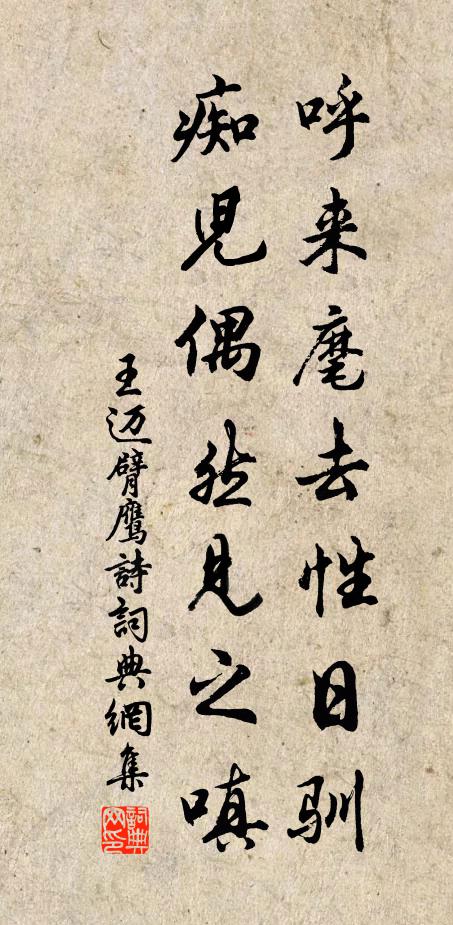 呼来麾去性日馴
痴児偶然見之嗔
王迈臂鹰詩詞典網集
詞典
网印